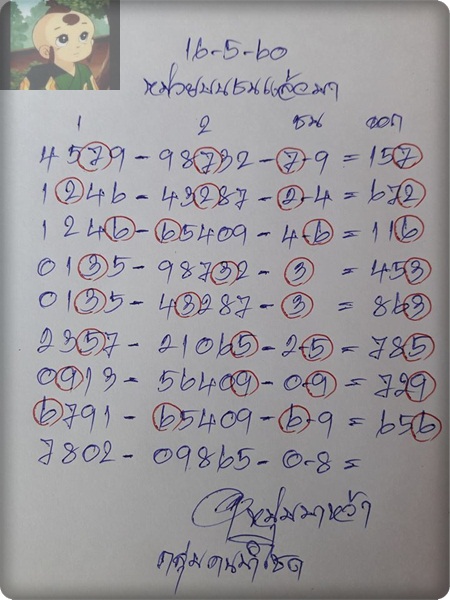 16-5-60
หน่วยบนชนแล้วมา
1 2 ชน ออก
4579 - 98732 - 7-9 = 157
1246 - 43287 - 2-4 = 672
1246 - 65409 - 4-6 = 116
0135 - 98732 - 3 = 453
0135 - 43287 - 3 = 863
2357 - 21065 - 2-5 = 785
0913 - 56409 - 0-9 = 729
6791 - 65409 - 6-9 = 656
7802 - 09865 - 0-8 =
กลุ่มคนนำโชค